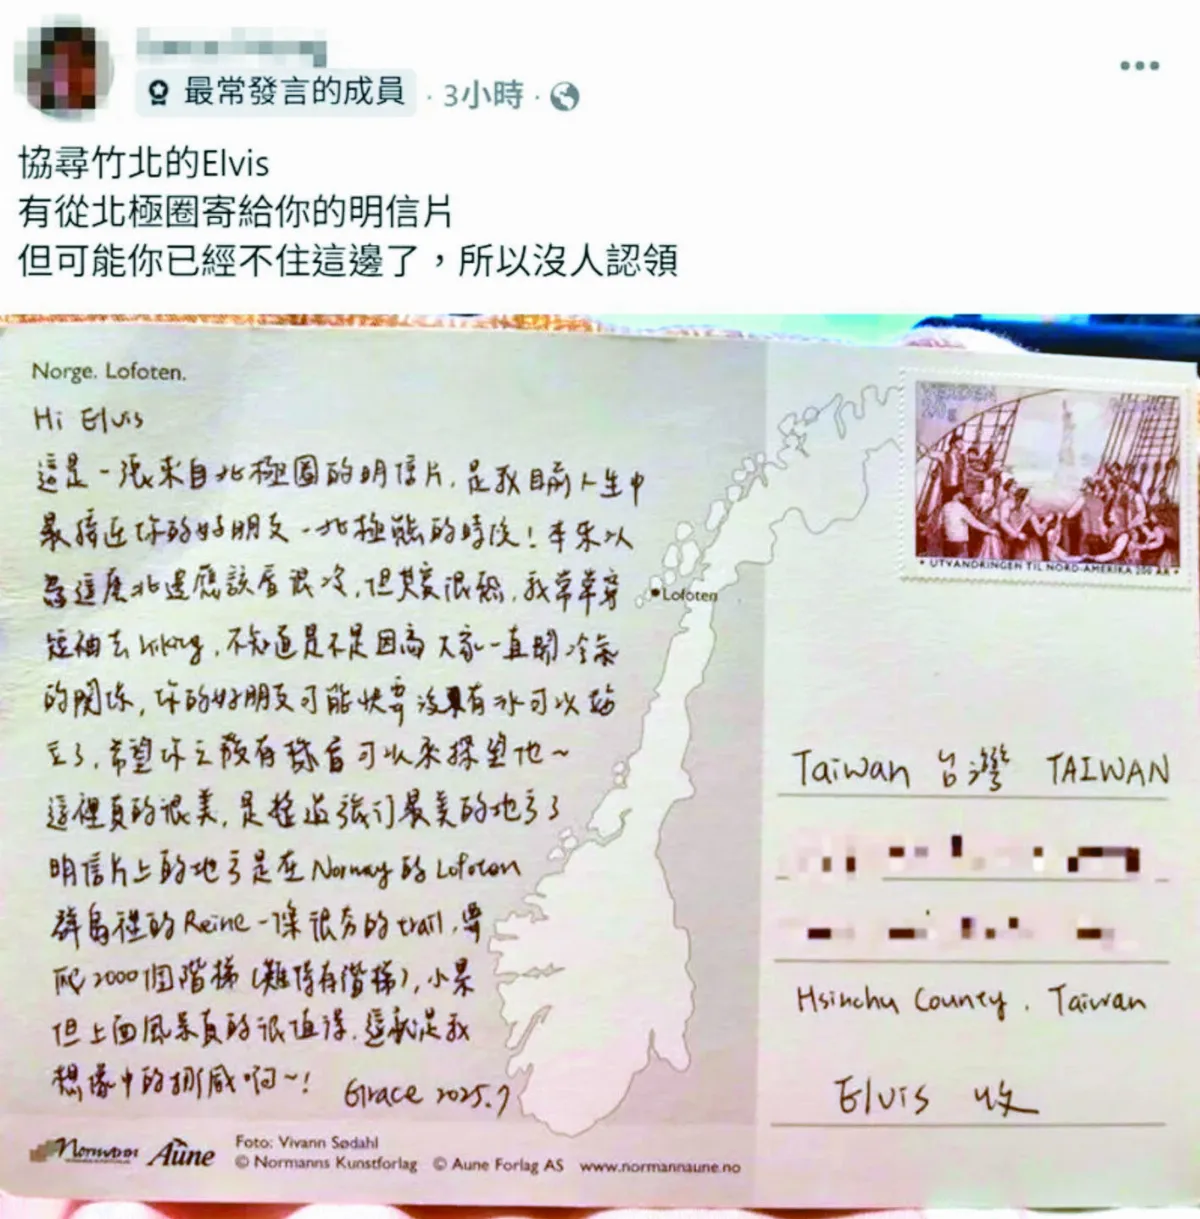 最常發言的成員 · 3小時 ·
協尋竹北的Elvis
有從北極圈寄給你的明信片
但可能你已經不住這邊了，所以沒人認領
Norge. Lofoten.
Hi Elvis
這是一張來自北極圈的明信片，是我目前人生中
最接近你的好朋友－北極熊的時候！本來以
為這麼北邊應該會很冷，但其實很熱，我常常穿
短袖去hiking，不知道是不是因為大家一直開冷氣
的關係，你的好朋友可能快要沒有冰可以站
立了，希望你之後有機會可以來探望他～
這裡真的很美，是整趟旅行最美的地方了
明信片上的地方是在Norway的Lofoten
群島裡的Reine一條很夯的trail，要
爬2000個階梯(難得有階梯)，小累
但上面風景真的很值得，這就是我
想像中的挪威啊～！ Grace 2025.7
VERDEN
20g
UTVANDRINGEN TIL NORD-AMERIKA 200 ÅR
Lofoten
Taiwan 台灣 TAIWAN
Hsinchu County, Taiwan
Elvis 收
Normanns Aune
Foto: Vivann Sødahl
© Normanns Kunstforlag © Aune Forlag AS www.normannaune.no